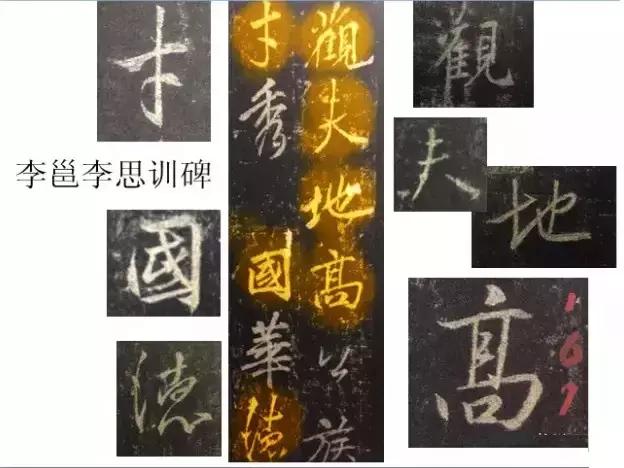 李邕李思训碑
觀夫地高公族
才秀國華德
才
國
德
觀
夫
地
高
167